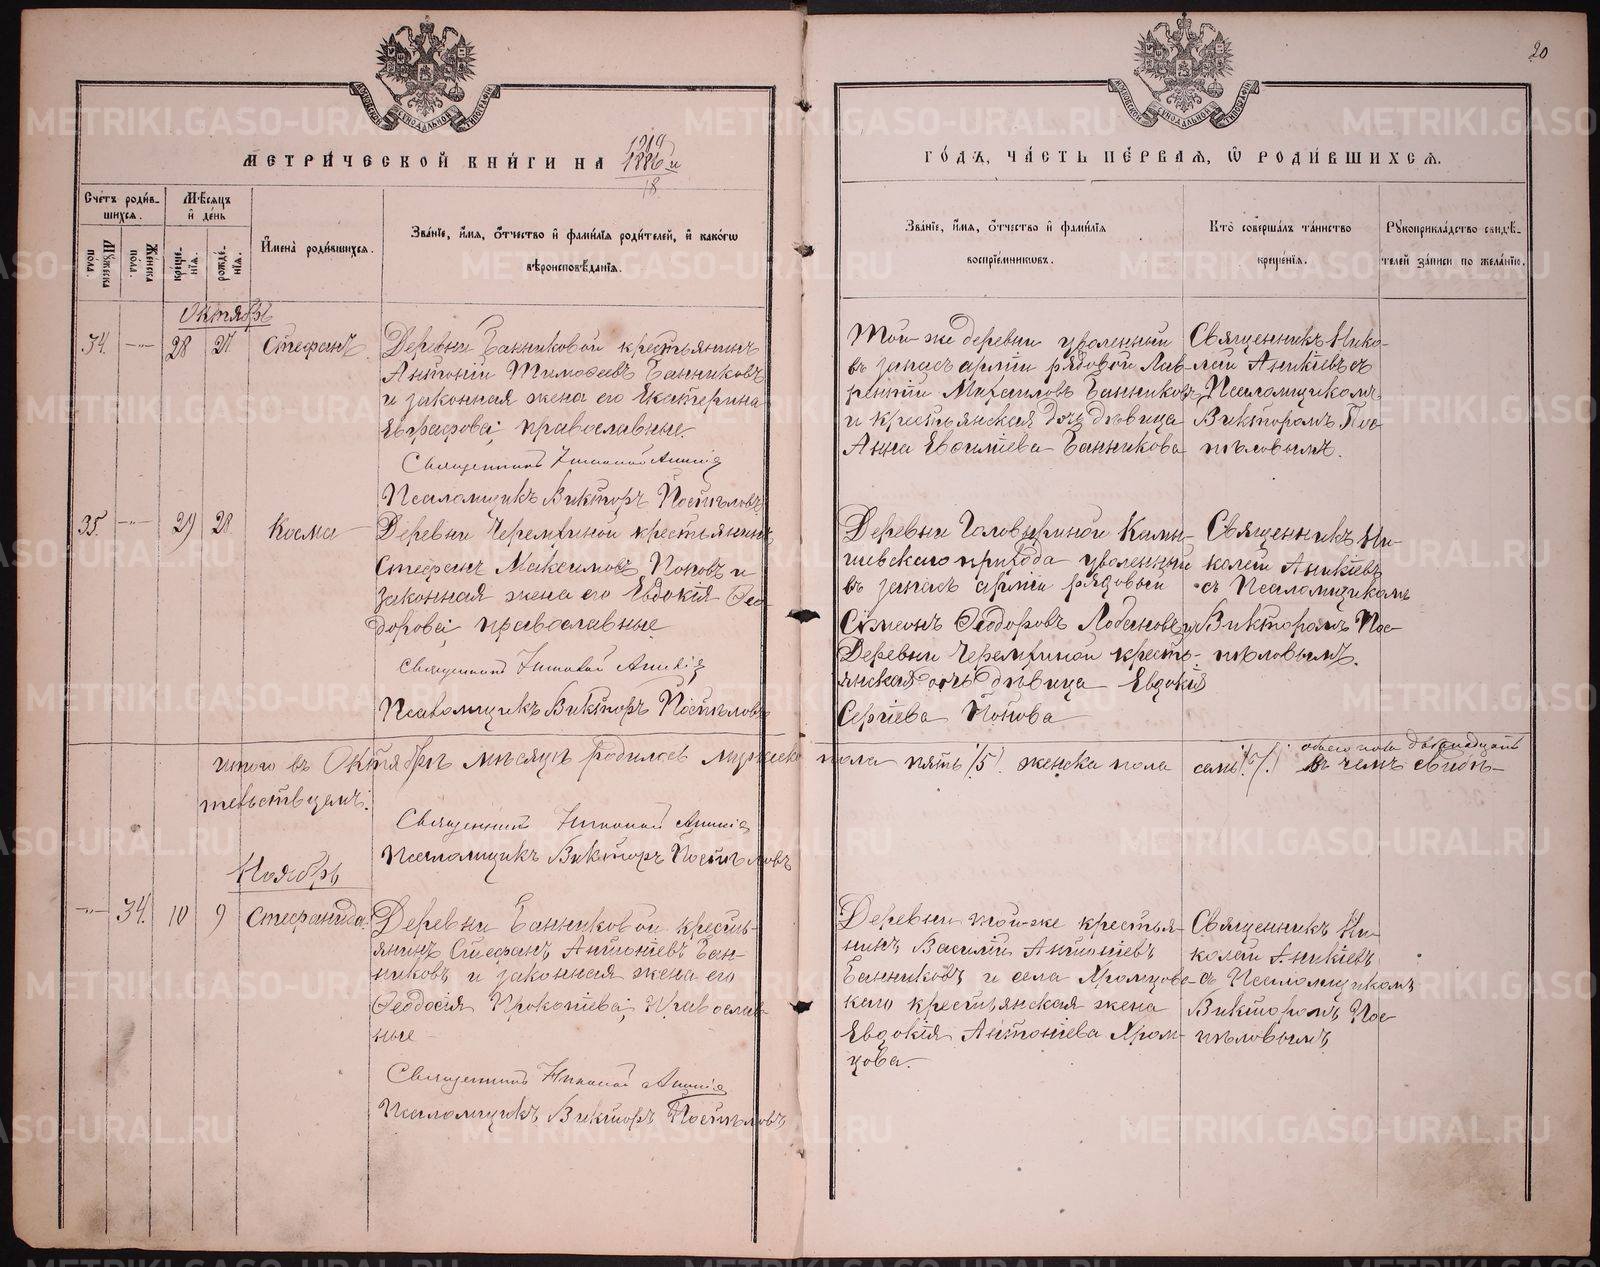 20
МОСКОВСКОЙ СѴНОДАЛЬНОЙ ТИПОГРАФІИ
МОСКОВСКОЙ СѴНОДАЛЬНОЙ ТИПОГРАФІИ
МЕТРИ́ЧЕСКОЙ КНИ́ГИ НА 1886 й
18
ГО́ДЪ, ЧА́СТЬ ПЕ́РВАЯ, Ѡ҆ РОДИ́ВШИХСЯ.
Сче́тъ роди́в-
шихся.
Му́жеска по́лъ.
Же́нска по́лъ.
Мѣ́сяцъ
и҆ де́нь
креще́-
нїя.
рожде́-
нїя.
И҆мена̀ роди́вшихся.
Зва́нїе, и҆́мя, ѻ҆́тчество и҆ фами́лїя роди́телей, и҆ како́гѡ
вѣроисповѣ́данїя.
Зва́нїе, и҆́мя, ѻ҆́тчество и҆ фами́лїя
воспрїе́мниковъ.
Кто̀ соверша́лъ та́инство
креще́нїя.
Рꙋкоприкла́дство свидѣ́-
телей за́писи по жела́нїю.
Октябрь
34. —"— 28 27 Стефанъ
Деревни Банниковой крестьянинъ
Антоній Тимоѳеевъ Банниковъ
и законная жена его Екатерина
Евграфова; православные.
Священникъ Николай Аникіев
Псаломщикъ Викторъ Поспѣловъ
Той-же деревни уволенный
въ запасъ арміи рядовой Лав-
рентій Михаиловъ Банниковъ
и крестьянская дочь дѣвица
Анна Евѳиміева Банникова
Священникъ Нико-
лай Аникіевъ съ
Псаломщикомъ
Викторомъ Пос-
пѣловымъ.
35. —"— 29 28 Косма
Деревни Черемхиной крестьянинъ
Стефанъ Максимовъ Поповъ и
законная жена его Евдокія Ѳео-
дорова; православные
Священникъ Николай Аникіев
Псаломщикъ Викторъ Поспѣловъ
Деревни Головыриной Камы-
шевскаго прихода уволенный
въ запасъ арміи рядовый
Сѷмеонъ Ѳеодоровъ Лобановъ и
Деревни Черемхиной кресть-
янская дочь дѣвица Евдокія
Сергіева Попова
Священникъ Ни-
колай Аникіевъ
съ Псаломщикомъ
Викторомъ Пос-
пѣловымъ.
итого въ Октябрѣ мѣсяцѣ родилось мужеска пола пять /5/. женска пола семь /7/. обоего пола двѣнадцать въ чемъ свидѣ-
тельствуемъ:
Священникъ Николай Аникіев
Псаломщикъ Викторъ Поспѣловъ
Ноябрь
—"— 34. 10 9 Стефанида
Деревни Банниковой кресть-
янинъ Стефанъ Антоніевъ Бан-
никовъ и законная жена его
Ѳеодосія Прокопіева; Православ-
ные
Священникъ Николай Аникіев
Псаломщикъ Викторъ Поспѣловъ
Деревни той-же крестья-
нинъ Василій Антоніевъ
Банниковъ и села Хромцов-
скаго крестьянская жена
Евдокія Антоніева Хром-
цова.
Священникъ Ни-
колай Аникіевъ
съ Псаломщикомъ
Викторомъ Пос-
пѣловымъ
METRIKI.GASO-URAL.RU